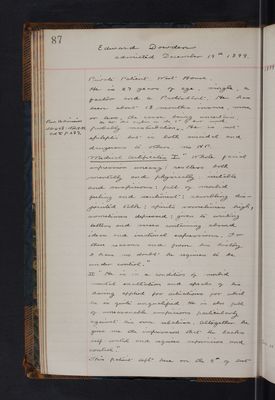 87
Edward Dowden
admitted December 19th 1899.
Private Patient. West House.
He is 27 years of age, single, a
and a Presbyterian. He has
been about 18 months insane, more
or less, the cause being uncertain
probably masturbation. He is not
epileptic but is both suicidal and
dangerous to others. no H.P.
Medical Certificates I "Whole facial
expression uneasy; restless both
mentally and physically; irritable
and suspicious; full of morbid
feeling and sentiment; rambling dis-
jointed talk; spirits sometimes high,
sometimes depressed; given to writing
letters and verses containing absurd
ideas and irrational expressions. For
these reasons and from his history
I have no doubt he requires to be
under control."
II "He is in a condition of morbid
mental exaltation and speaks of his
having applied for situations for which
he is quite unqualified. He is also full
of unreasonable suspicions particularly
against his own relatives. Altogether he
gave me the impression that he lacks
self control and requires supervision and
control."
This patient left here on the